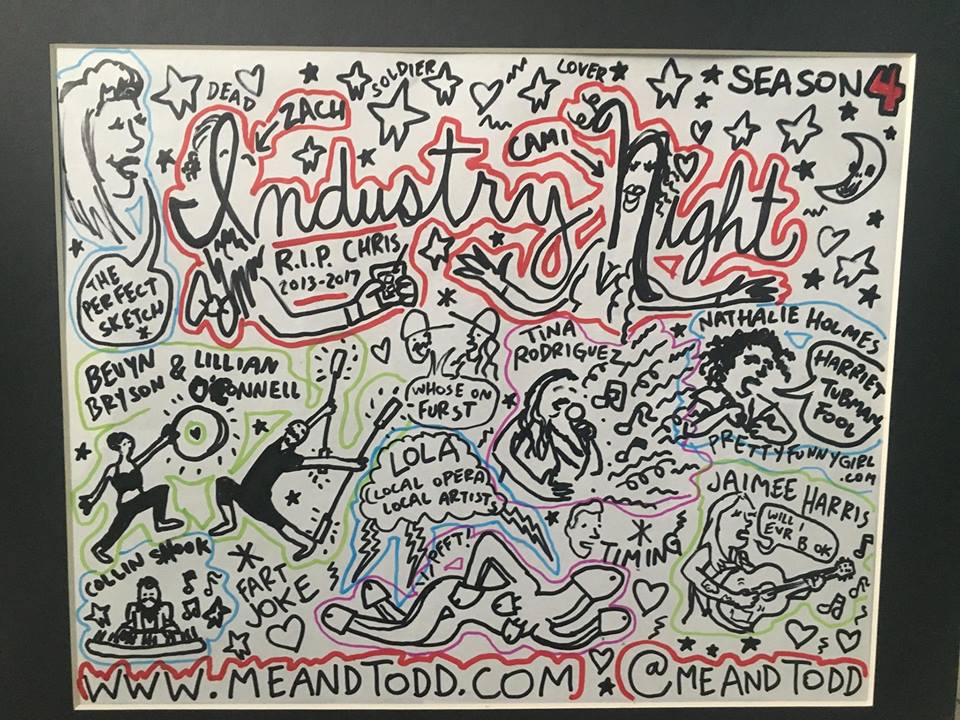 DEAD
SOLDIER
LOVER
SEASON 4
ZACH
CAMI
Industry Night
R.I.P. CHRIS
2013-2017
THE
PERFECT
SKETCH
BEVYN & LILLIAN
BRYSON O'CONNELL
WHOSE ON
FURST
TINA
RODRIGUEZ
NATHALIE HOLMES
HARRIET
TUBMAN
FOOL
PRETTYFUNNYGIRL
.COM
LOLA
(LOCAL OPERA
LOCAL ARTISTS)
JAIMEE HARRIS
WILL I
EVR B OK
TIMING
COLLIN SHOOK
FART
JOKE
WWW.MEANDTODD.COM
@MEANDTODD